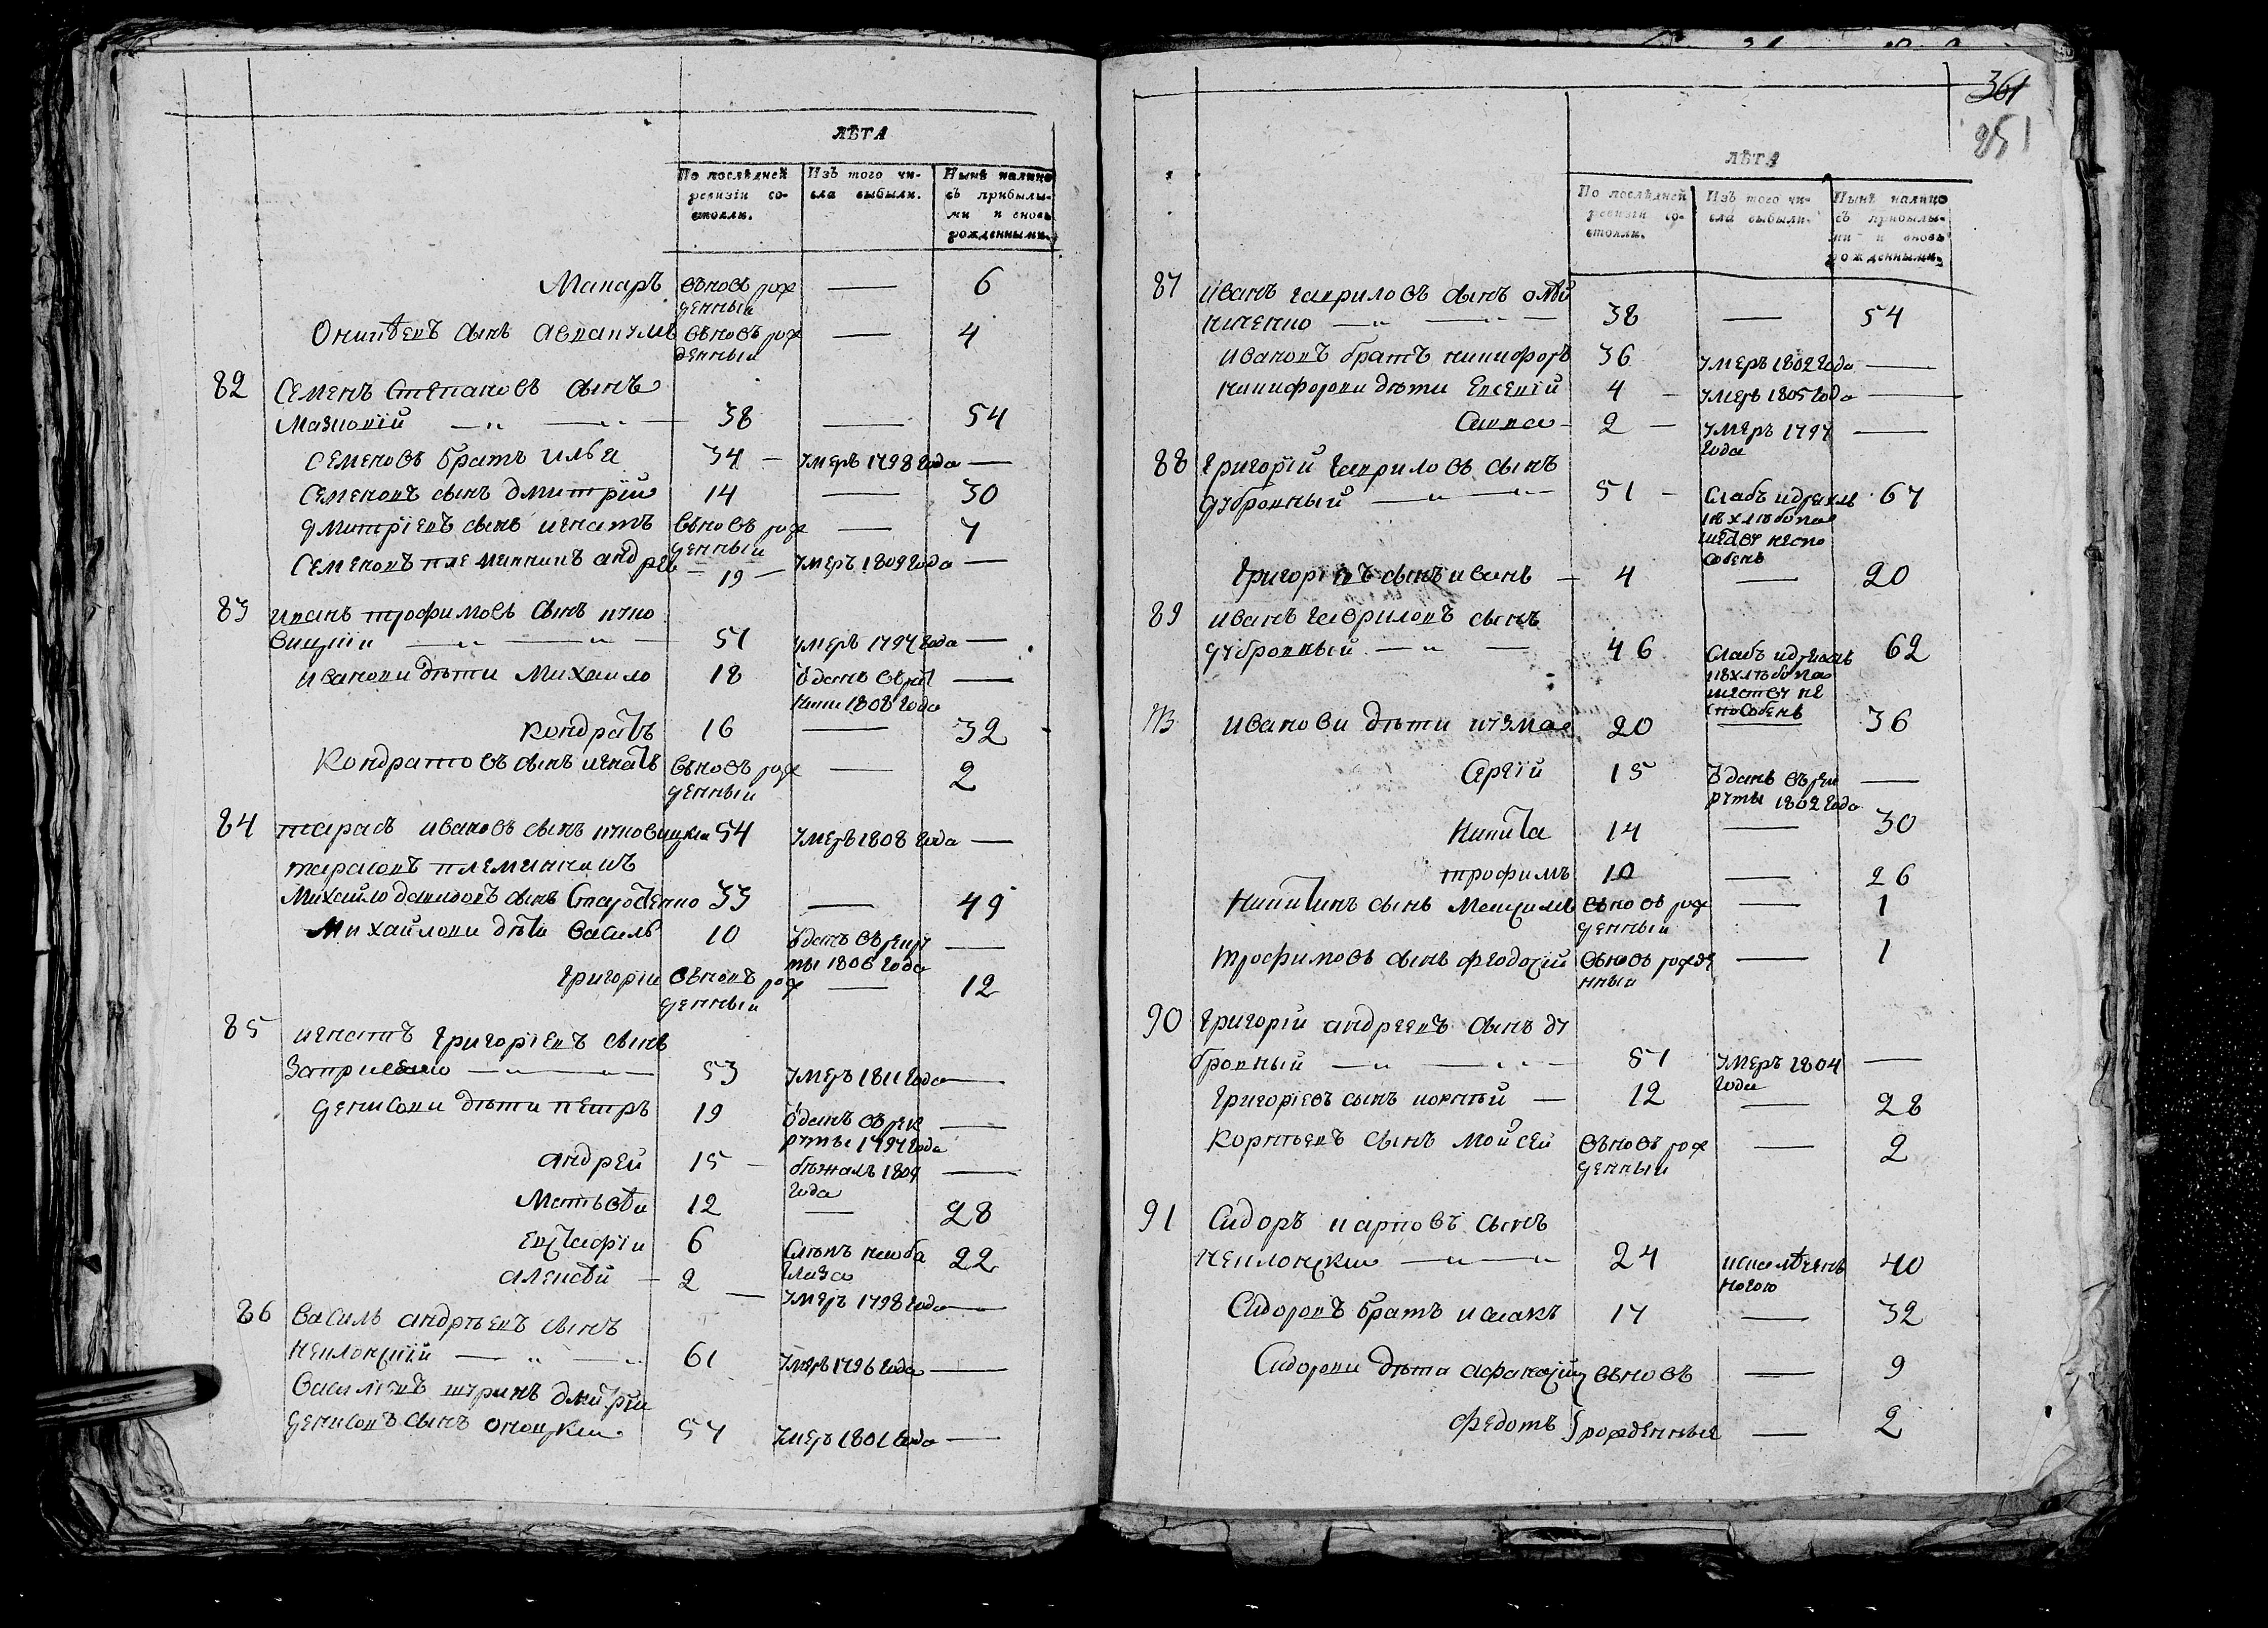 ЛѢТА
По послѣдней ревизіи состояли.
Изъ того числа выбыли.
Нынѣ налицо съ прибылыми и вновь рожденными.
Макаръ вѣновъ рож денный — 6
сынъ вѣновъ рож денный — 4
82 Семенъ Степановъ сынъ
38 — 54
Семеновъ братъ Илья 34 умеръ 1798 года —
Семеновъ сынъ дмитрій 14 — 30
дмитріевъ сынъ игнатъ вѣновъ рож денный — 7
Семеновъ племянникъ андрей 19 умеръ 1809 года —
83 иванъ трофимовъ сынъ
51 умеръ 1797 года —
Иванови дѣти Михаило 18 1808 года —
Кондратъ 16 — 32
Кондратовъ сынъ игнатъ вѣновъ рож денный — 2
84 тарасъ ивановъ сынъ 54 умеръ 1808 года —
тарасовъ племянникъ
Михайло сынъ 33 — 49
Михайлови дѣти Василь 10 ѿданъ въ рекру ты 1806 года —
Григорій вѣновъ рож денный — 12
85 игнатъ Григоріевъ сынъ
53 умеръ 1811 года —
денисови дѣти петръ 19 ѿданъ въ рек руты 1797 года —
андрей 15 бѣжалъ 1809 года —
Матьвѣй 12 — 28
Евстафій 6 Слѣпъ на оба глаза 22
алексѣй 2 умеръ 1798 года —
86 Василь андрѣевъ сынъ
61 умеръ 1796 года —
Василіевъ шуринъ дмитрій
денисовъ сынъ 54 умеръ 1801 года —
361
251
ЛѢТА
По послѣдней ревизіи состояли.
Изъ того числа выбыли.
Нынѣ налицо съ прибылыми и вновь рожденными.
87 Иванъ Гавриловъ сынъ
38 — 54
ивановъ братъ никифоръ 36 умеръ 1802 года —
никифорови дѣти Евсевій 4 умеръ 1805 года —
Савва 2 умеръ 1797 года —
88 Григорій Гавриловъ сынъ
дубровный 51 Слабъ и дряхлъ къ хлѣбопа шеству неспо собенъ 67
Григоріевъ сынъ иванъ 4 — 20
89 иванъ Гавриловъ сынъ
дубровный 46 Слабъ и дряхлъ къ хлѣбопа шеству не способенъ 62
Иванови дѣти 20 — 36
Сергій 15 ѿданъ въ рек руты 1802 года —
Никита 14 — 30
трофимъ 10 — 26
Никитинъ сынъ Максимъ вѣновъ рож денный — 1
трофимовъ сынъ Феодосій вѣновъ рожде нный — 1
90 Григорій андреевъ сынъ ду
бровный 51 умеръ 1804 года —
Григоріевъ сынъ корнѣй 12 — 28
Корнѣевъ сынъ Мойсей вѣновъ рож денный — 2
91 Сидоръ карповъ сынъ
24 искалѣченъ ногою 40
Сидоровъ братъ исаакъ 17 — 32
Сидорови дѣти афанасій вѣновъ — 9
Федотъ рожденныя — 2